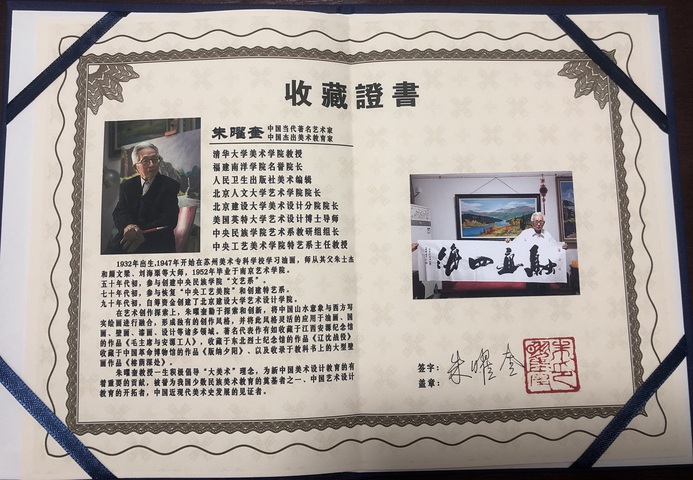 收藏證書
朱曜奎 中国当代著名艺术家
中国杰出美术教育家
清华大学美术学院教授
福建南洋学院名誉院长
人民卫生出版社美术编辑
北京人文大学艺术学院院长
北京建设大学美术设计分院院长
美国莱特大学艺术设计博士导师
中央民族学院艺术系教研组组长
中央工艺美术学院特艺系主任教授
1932年出生,1947年开始在苏州美术专科学校学习油画,师从其父朱士杰
和颜文樑、刘海粟等大师,1952年毕业于南京艺术学院。
五十年代初,参与创建中央民族学院“文艺系”。
七十年代初,参与恢复“中央工艺美院”和创建特艺系。
九十年代初,自筹资金创建了北京建设大学艺术设计学院。
在艺术创作探索上,朱曜奎勤于探索和创新,将中国山水意象与西方写
实绘画进行融合,形成独有的创作风格,并将此风格灵活的应用于油画、国
画、壁画、漆画、设计等诸多领域。著名代表作有如收藏于江西安源纪念馆
的作品《毛主席与安源工人》,收藏于东北烈士纪念馆的作品《辽沈战役》
收藏于中国革命博物馆的作品《版纳夕阳》、以及录于教科书上的大型壁
画作品《椿荫深处》
朱曜奎教授一生积极倡导“大美术”理念,为新中国美术设计教育的有
着重要的贡献,被誉为我国少数民族美术教育的奠基者之一、中国艺术设计
教育的开拓者,中国近现代美术史发展的见证者。
签字: 朱曜奎
盖章: